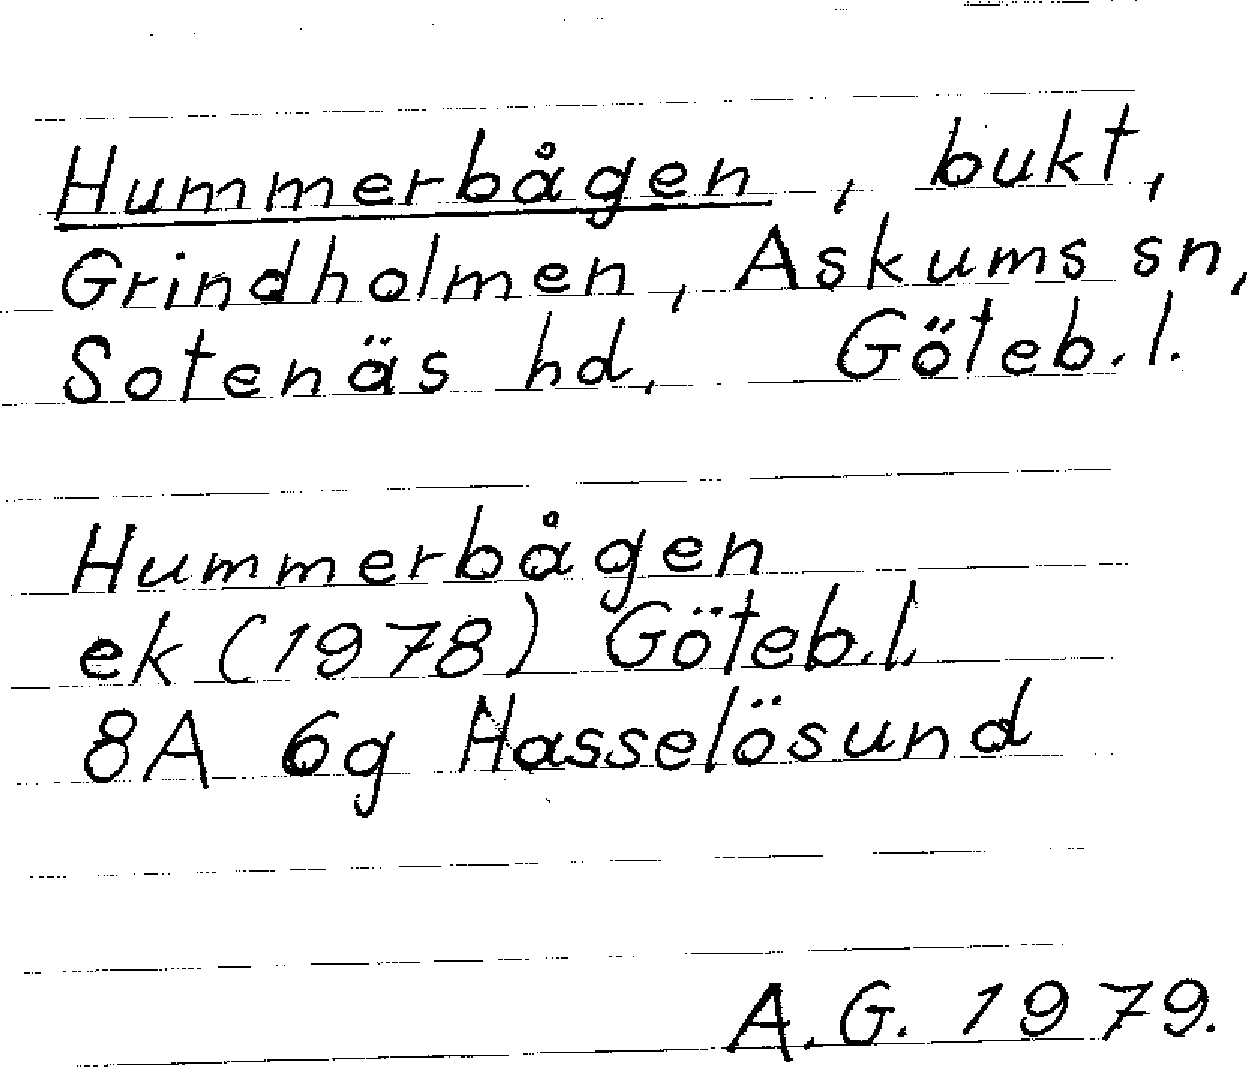 Hummerbågen, bukt,
Grindholmen, Askums sn,
Sotenäs hd. Göteb.l.
Hummerbågen
ek (1978) Göteb.l.
8A 6g Hasselösund
A.G. 1979.